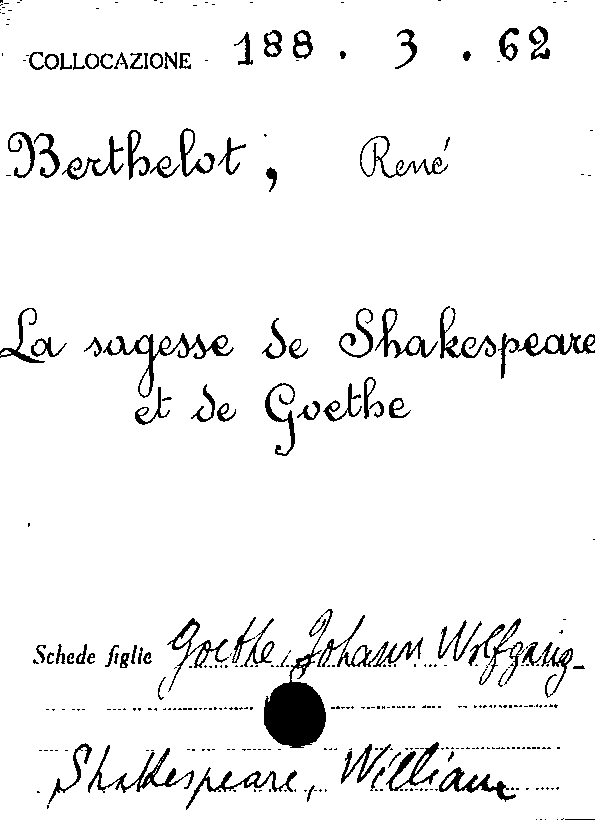 COLLOCAZIONE 188 . 3 . 62
Berthelot, René
La sagesse de Shakespeare
et de Goethe
Schede figlie Goethe, Johann Wolfgang-
Shakespeare, William